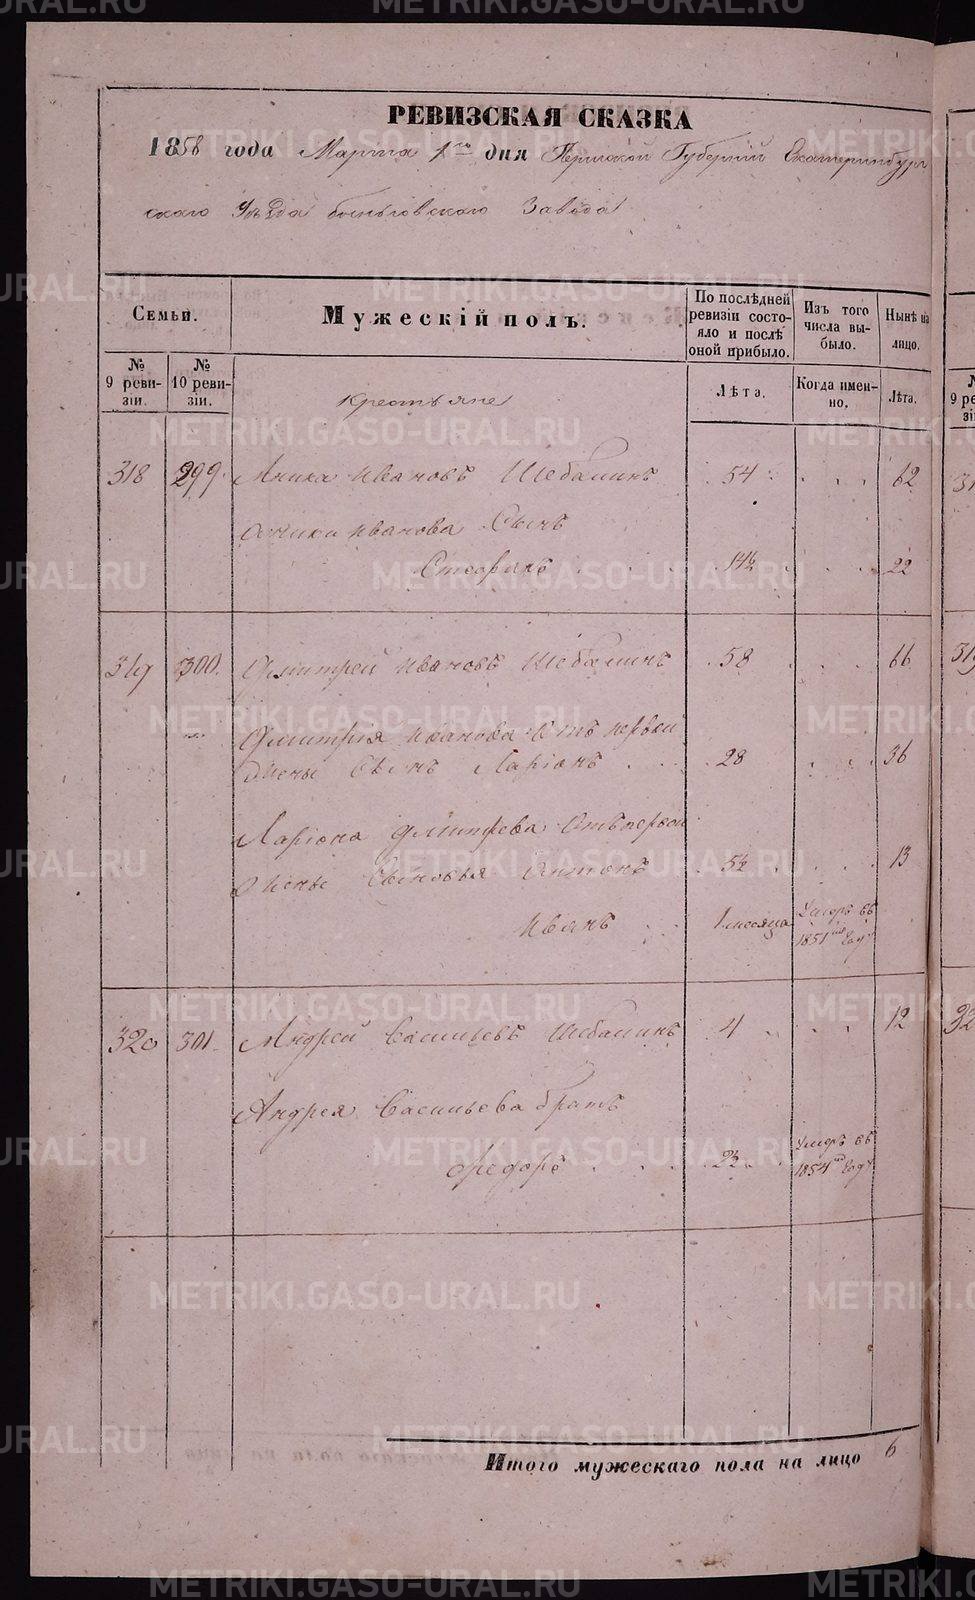 РЕВИЗСКАЯ СКАЗКА
1858 года Марта 1го дня Пермской Губерніи Екатеринбург
скаго Уѣзда Заводa
Семьи.
Мужескій полъ.
По послѣдней ревизіи состояло и послѣ оной прибыло.
Изъ того числа выбыло.
Нынѣ на лицо.
№ 9 ревизіи.
№ 10 ревизіи.
Крестьяне
Лѣта.
Когда именно.
Лѣта.
318 299 Аника Ивановъ Шебалинъ 54 62
Аники Иванова Сынъ
Стефанъ 14½ 22
319 300. Дмитрей Ивановъ Шебалинъ 58 66
Дмитрія Иванова Отъ первой
Жены Сынъ Ларіонъ 28 36
Ларіона Дмитрева Отъ первой
Жены Сыновья Антонъ 5½ 13
Иванъ 1 месяца Умеръ въ 1851мъ Году
320 301 Андрей Васильевъ Шебалинъ 4 12
Андрея Васильева братъ
Федоръ 2½ Умеръ въ 1854мъ Году
Итого мужескаго пола на лицо 6
METRIKI.GASO-URAL.RU